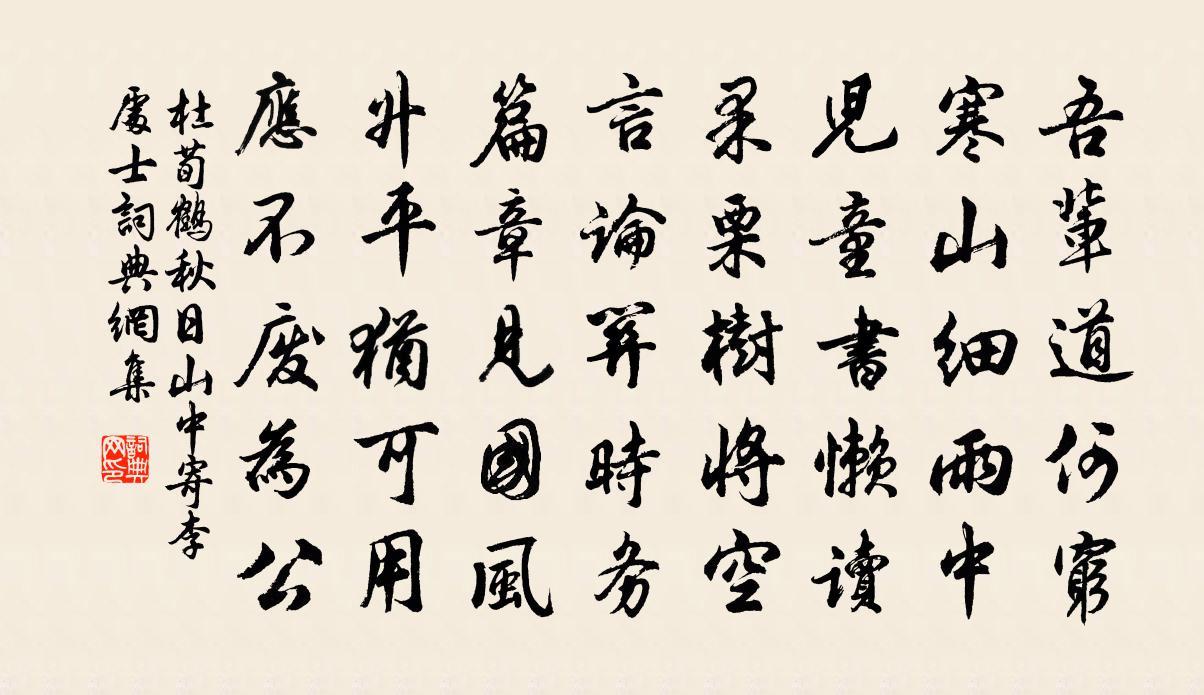 吾輩道何窮
寒山細雨中
兒童書懶讀
果栗樹將空
言論關時務
篇章見國風
升平猶可用
應不廢為公
杜荀鶴秋日山中寄李
處士詞典網集
詞典
网印